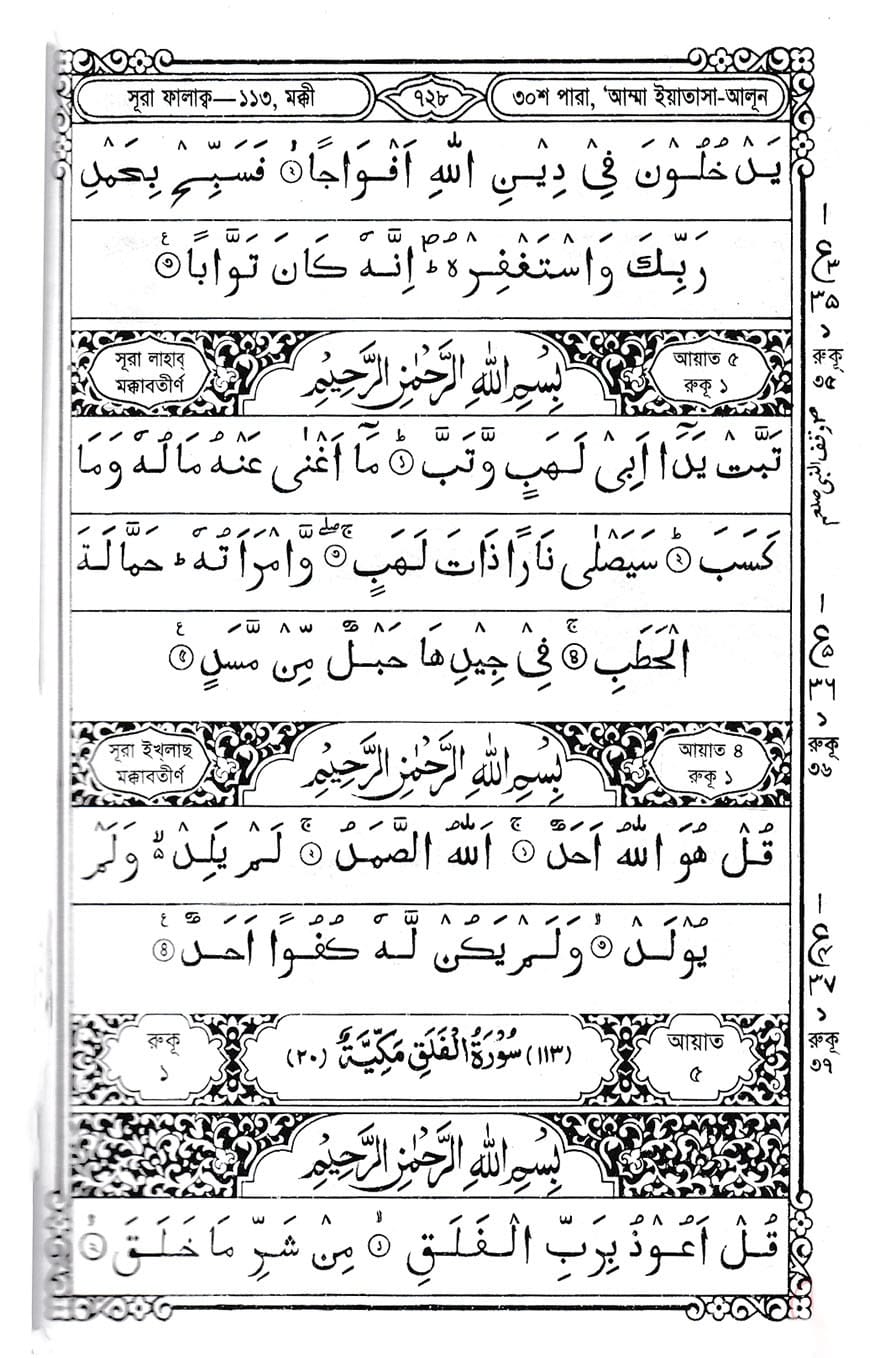 সূরা ফালাক্ব—১১৩, মক্কী
৭২৮
৩০শ পারা, 'আম্মা ইয়াতাসা-আলূন
يَدْخُلُوْنَ فِيْ دِيْنِ اللّٰهِ اَفْوَاجًا ২ فَسَبِّحْ بِحَمْدِ
رَبِّكَ وَاسْتَغْفِرْهُ ؕ اِنَّهٗ كَانَ تَوَّابًا ৩
সূরা লাহাব্
মক্কাবতীর্ণ
بِسْمِ اللّٰهِ الرَّحْمٰنِ الرَّحِيْمِ
আয়াত ৫
রুকূ ১
تَبَّتْ يَدَاۤ اَبِيْ لَهَبٍ وَّتَبَّ ১ مَاۤ اَغْنٰى عَنْهُ مَالُهٗ وَمَا
كَسَبَ ২ سَيَصْلٰى نَارًا ذَاتَ لَهَبٍ ৩ وَّامْرَاَتُهٗ ؕ حَمَّالَةَ
الْحَطَبِ ৪ فِيْ جِيْدِهَا حَبْلٌ مِّنْ مَّسَدٍ ৫
সূরা ইখ্লাছ
মক্কাবতীর্ণ
بِسْمِ اللّٰهِ الرَّحْمٰنِ الرَّحِيْمِ
আয়াত ৪
রুকূ ১
قُلْ هُوَ اللّٰهُ اَحَدٌ ১ اَللّٰهُ الصَّمَدُ ২ لَمْ يَلِدْ وَلَمْ
يُوْلَدْ ৩ وَلَمْ يَكُنْ لَّهٗ كُفُوًا اَحَدٌ ৪
রুকূ
১
(١١٣) سُوْرَةُ الْفَلَقِ مَكِّيَّةٌ (٢٠)
আয়াত
৫
بِسْمِ اللّٰهِ الرَّحْمٰنِ الرَّحِيْمِ
قُلْ اَعُوْذُ بِرَبِّ الْفَلَقِ ১ مِنْ شَرِّ مَا خَلَقَ ২
ع
রুকূ
৩৫
ع
রুকূ
৩৬
ع
রুকূ
৩৭